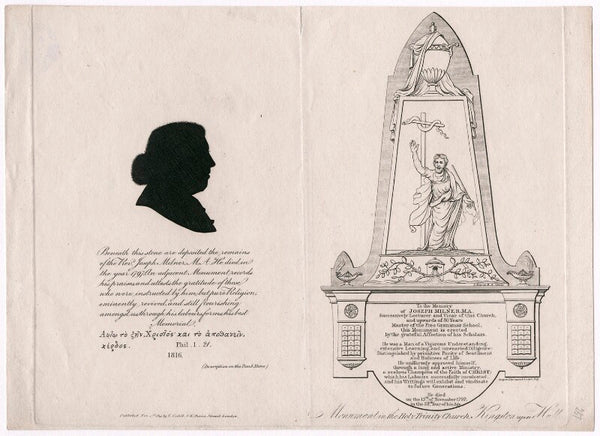 Beneath this stone are deposited the remains
of the Revd. Joseph Milner, M.A. He died in
the year 1797. An adjacent Monument records
his praises and attests the gratitude of those
who were instructed by him, but pure Religion,
eminently revived, and still flourishing
amongst us through his labours, forms his best
Memorial.
Χριστὸς καὶ τὸ ἀποθανεῖν
κέρδος.
Phil. 1. 21.
1816.
(Inscription on the Flat Stone)
To the Memory
of JOSEPH MILNER, M.A.
Successively Lecturer and Vicar of this Church,
and upwards of 30 Years
Master of the Free Grammar School,
this Monument is erected
by the grateful Affection of his Scholars.
He was a Man of a Vigorous Understanding,
extensive Learning, and unwearied Diligence:
Distinguished by primitive Purity of Sentiment
and Holiness of Life.
He uniformly approved himself,
through a long and active Ministry,
a zealous Champion of the Faith of CHRIST:
which his Labours successfully inculcated;
and his Writings will exhibit and vindicate
to future Generations.
He died
on the 15th of November 1797,
in the year of his Age
Monument in the Holy Trinity Church, Kingston upon Hull